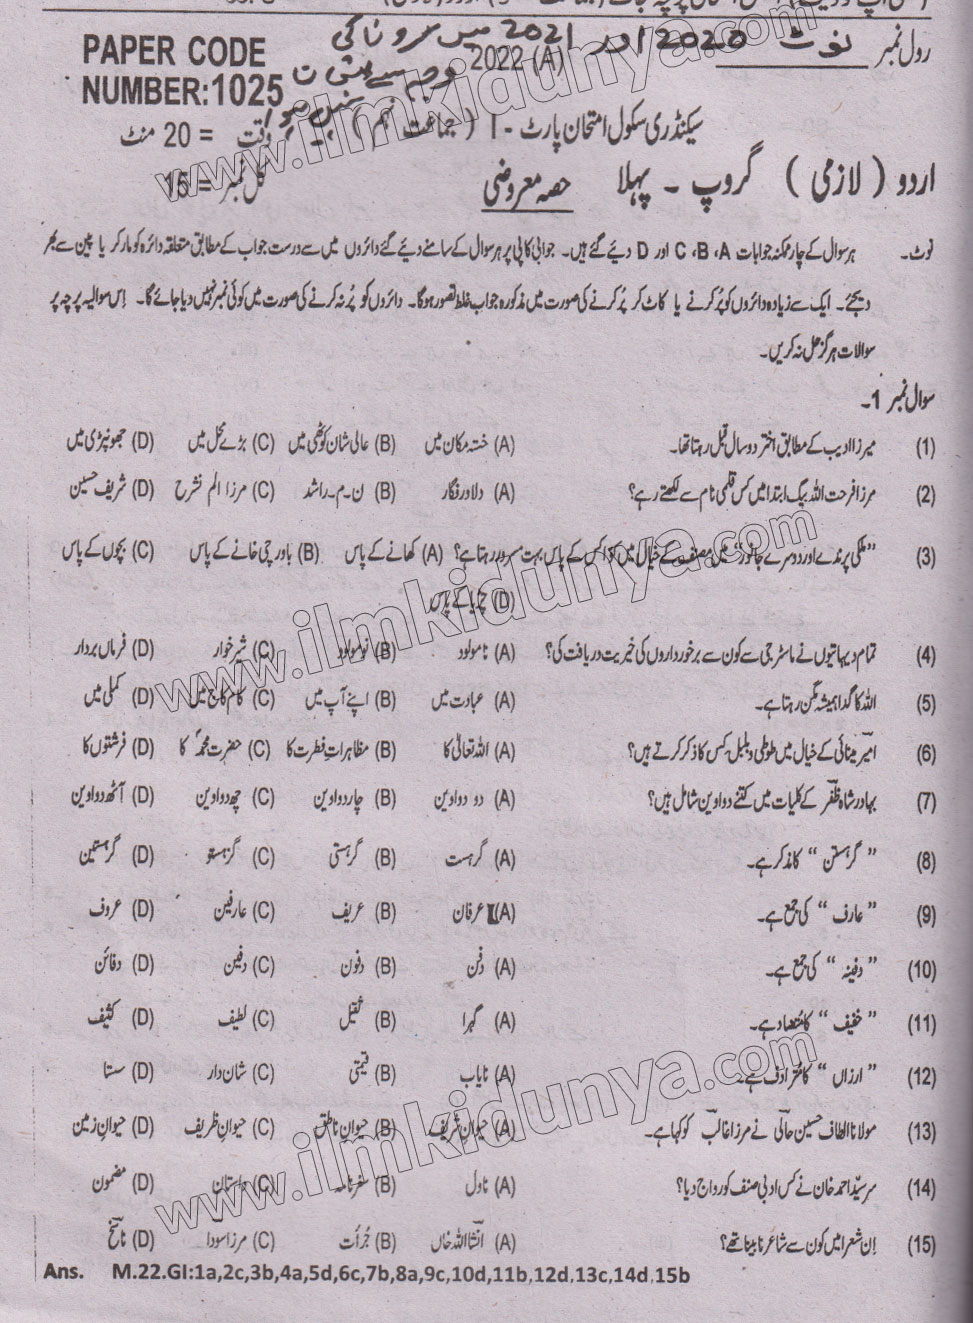 رول نمبر
نوٹ 2020 اور 2021 میں کرونا کی
وجہ سے
PAPER CODE
NUMBER:1025
2022 (A)
سیکنڈری سکول امتحان پارٹ - I ( جماعت نہم ) وقت = 20 منٹ
اردو ( لازمی ) گروپ - پہلا حصہ معروضی کل نمبر = 15
نوٹ۔ ہر سوال کے چار ممکنہ جوابات A ، B ، C اور D دیئے گئے ہیں۔ جوابی کاپی پر ہر سوال کے سامنے دیئے گئے دائروں میں سے درست جواب کے مطابق متعلقہ دائرہ کو مارکر یا پین سے بھر
دیجئے۔ ایک سے زیادہ دائروں کو پُر کرنے یا کاٹ کر پُر کرنے کی صورت میں مذکورہ جواب غلط تصور ہوگا۔ دائروں کو پُر نہ کرنے کی صورت میں کوئی نمبر نہیں دیا جائے گا۔ اِس سوالیہ پرچہ پر
سوالات ہرگز حل نہ کریں۔
سوال نمبر 1۔
(1) میرزا ادیب کے مطابق اختر دو سال قبل رہتا تھا۔ (A) خستہ مکان میں (B) عالی شان کوٹھی میں (C) بڑے محل میں (D) جھونپڑی میں
(2) مرزا فرحت اللہ بیگ ابتدا میں کس قلمی نام سے لکھتے رہے؟ (A) دلاور فگار (B) ن-م-راشد (C) مرزا الم نشرح (D) شریف حسین
(3) ”ملکی پرندے اور دوسرے جانور“ میں مصنف کے خیال میں کوا کس کے پاس بہت مسرور رہتا ہے؟ (A) کھانے کے پاس (B) باورچی خانے کے پاس (C) بچوں کے پاس
(D) چڑیا کے پاس
(4) تمام دیہاتیوں نے ماسٹر جی سے کون سے برخورداروں کی خیریت دریافت کی؟ (A) نامولود (B) نومولود (C) شیر خوار (D) فرماں بردار
(5) اللہ کا گدا ہمیشہ مگن رہتا ہے۔ (A) عبادت میں (B) اپنے آپ میں (C) کام کاج میں (D) کملی میں
(6) امیرؔ مینائی کے خیال میں طوطی و بلبل کس کا ذکر کرتے ہیں؟ (A) اللہ تعالٰی کا (B) مظاہراتِ فطرت کا (C) حضرت محمدؐ کا (D) فرشتوں کا
(7) بہادر شاہ ظفرؔ کے کلیات میں کتنے دواوین شامل ہیں؟ (A) دو دواوین (B) چار دواوین (C) چھ دواوین (D) آٹھ دواوین
(8) ” گرہستن “ کا مذکر ہے۔ (A) گرہست (B) گرہستی (C) گرہستو (D) گرہستین
(9) ” عارف “ کی جمع ہے۔ (A) عرفان (B) عریف (C) عارفین (D) عروف
(10) ” دفینہ “ کی جمع ہے۔ (A) دفن (B) دفون (C) دفین (D) دفائن
(11) ” خفیف “ کا متضاد ہے۔ (A) گہرا (B) ثقیل (C) لطیف (D) کثیف
(12) ” ارزاں “ کا مترادف ہے۔ (A) نایاب (B) قیمتی (C) شان دار (D) سستا
(13) مولانا الطاف حسین حالیؔ نے مرزا غالبؔ کو کہا ہے۔ (A) حیوانِ شریف (B) حیوانِ ناطق (C) حیوانِ ظریف (D) حیوانِ زمین
(14) سرسیّد احمد خان نے کس ادبی صنف کو رواج دیا؟ (A) ناول (B) سفرنامہ (C) داستان (D) مضمون
(15) اِن شعرا میں کون سے شاعر نابینا تھے؟ (A) انشؔا اللہ خاں (B) جُرأت (C) مرزا سودا (D) ناسخؔ
Ans. M.22.GI:1a,2c,3b,4a,5d,6c,7b,8a,9c,10d,11b,12d,13c,14d,15b
www.ilmkidunya.com
www.ilmkidunya.com
www.ilmkidunya.com